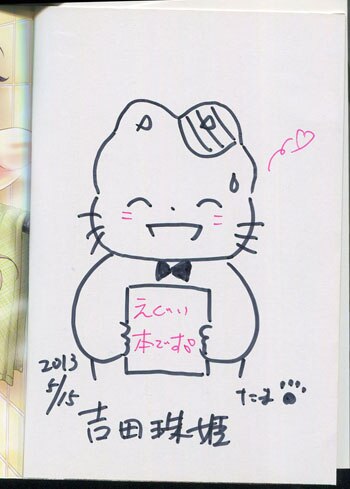 えぐい
本です。
2013
5/15
たま
吉田珠姫